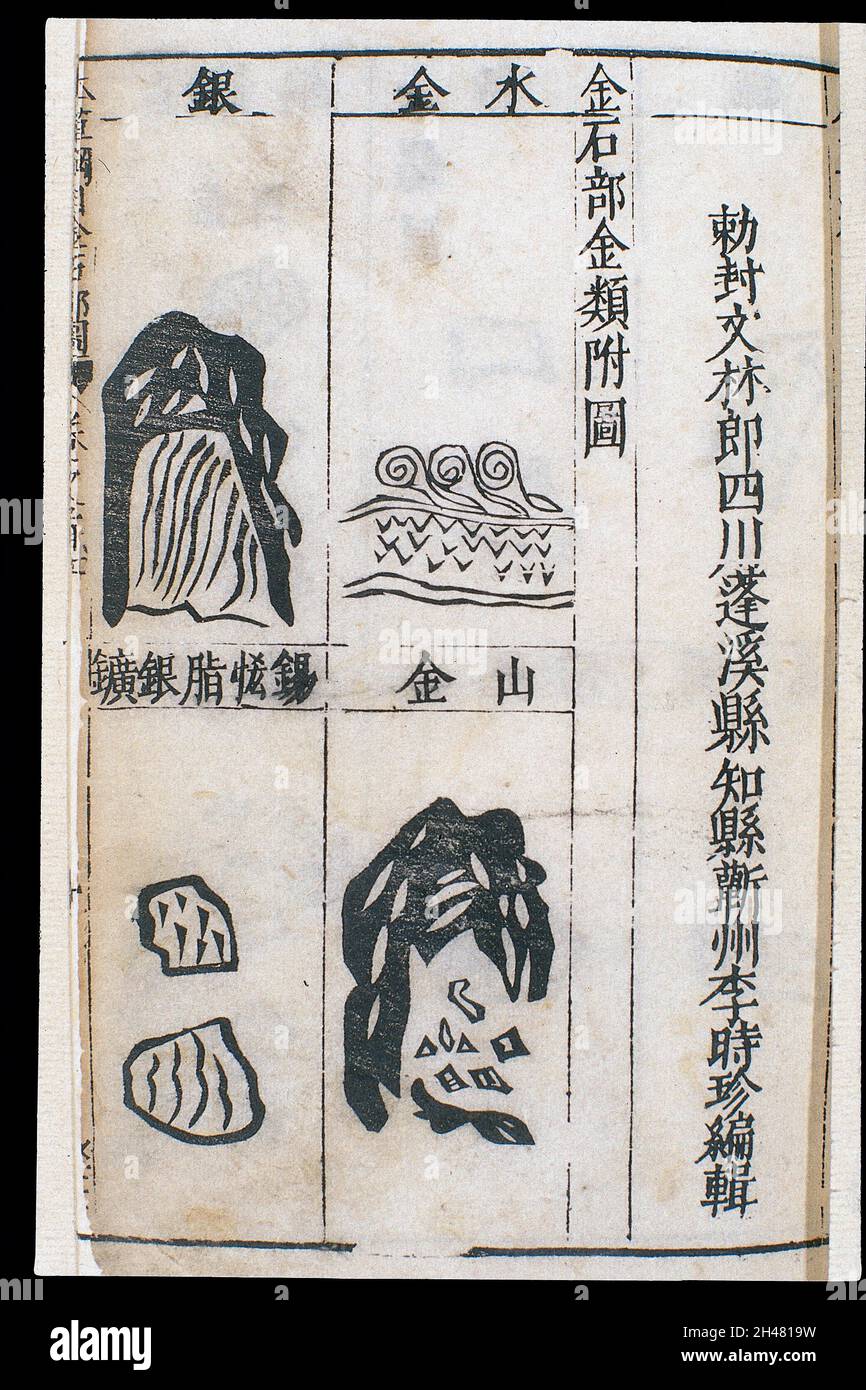 勅封文林郎四川蓬溪縣知縣蘄州李時珍編輯
金石部金類附圖
水金
山金
銀
錫恡脂銀鑛
alamy
Image ID: 2H4819W
www.alamy.com